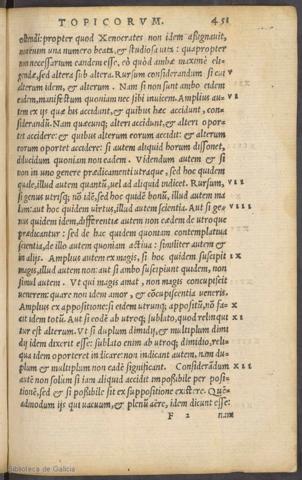 TOPICORVM. 451
ostendi: propter quod Xenocrates non idem assignauit,
uitarum una numero beata, & studiosa uita: quapropter
non necessarium eandem esse, eò quòd ambæ maximè eli-
gendæ, sed altera sub altera. Rursum considerandum si cui
alterum idem, & alterum. Nam si non sunt ambo eidem
eadem, manifestum quoniam nec sibi inuicem. Amplius au- V
tem ex ijs quæ his accidunt, & quibus hæc accidunt, con-
siderandū. Nam quæcunq; alteri accidunt, & alteri opor-
tet accidere: & quibus alterum eorum accidit: & alterum
eorum oportet accidere: si autem aliquid horum dissonet,
dilucidum quoniam non eadem. Videndum autem & si VI
non in uno genere prædicamenti utraque, sed hoc quidem
quale, illud autem quantū, uel ad aliquid indicet. Rursum, VII
si genus utriusq; nō idē, sed hoc quidē bonū, illud autem ma
lum: aut hoc quidem uirtus, illud autem scientia. Aut si ge- VIII
nus quidem idem, differentiæ autem non eædem de utroque
prædicantur: sed de hac quidem quoniam contemplatiua
scientia, de illo autem quoniam actiua: similiter autem &
in alijs. Amplius autem ex magis, si hoc quidem suscipit IX
magis, illud autem non: aut si ambo suscipiunt quidem, non
simul autem. Vt qui magis amat, non magis concupiscit
uenerem: quare non idem amor, & cōcupiscentia ueneris.
Amplius ex appositione: si eidem utrunq; appositū, nō fa- X
cit idem totū. Aut si eodē ab utroq; sublato, quod relinqui XI
tur est alterum. Vt si duplum dimidij, & multiplum dimi
dij idem dixerit esse: sublato enim ab utroq; dimidio, reli-
qua idem oporteret indicare: non indicant autem, nam du-
plum & multiplum non eadē significant. Considerādum XII
autē non solum si iam aliquid accidit impoßibile per posi-
tionē, sed & si poßibile sit ex suppositione existere. Quē
admodum ijs qui uacuum, & plenū aëre, idem dicunt esse:
F 2
Biblioteca de Galicia